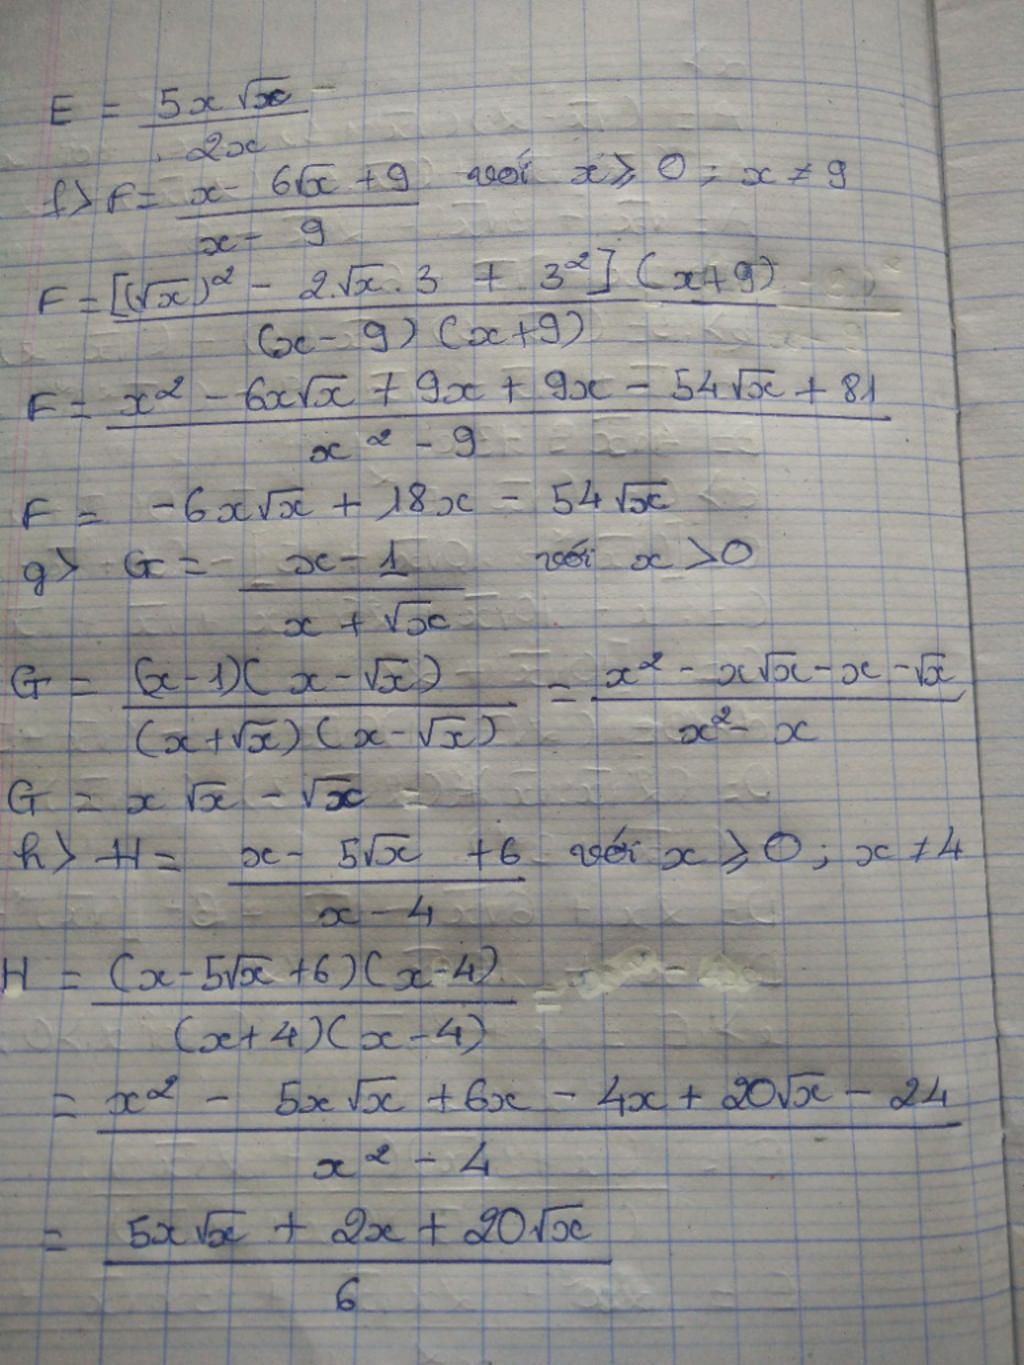 E = 5x√x / 2x
f> F = x - 6√x + 9 / x - 9 với x ⩾ 0 ; x ≠ 9
F = [(√x)² - 2.√x.3 + 3²] (x+9) / (x-9) (x+9)
F = x² - 6x√x + 9x + 9x - 54√x + 81 / x² - 9
F = -6x√x + 18x - 54√x
g> G = x - 1 / x + √x với x > 0
G = (x-1)(x-√x) / (x+√x)(x-√x) = x² - x√x - x - √x / x² - x
G = x√x - √x
h> H = x - 5√x + 6 / x - 4 với x ⩾ 0 ; x ≠ 4
H = (x-5√x+6)(x-4) / (x+4)(x-4) =
= x² - 5x√x + 6x - 4x + 20√x - 24 / x² - 4
= 5x√x + 2x + 20√x / 6